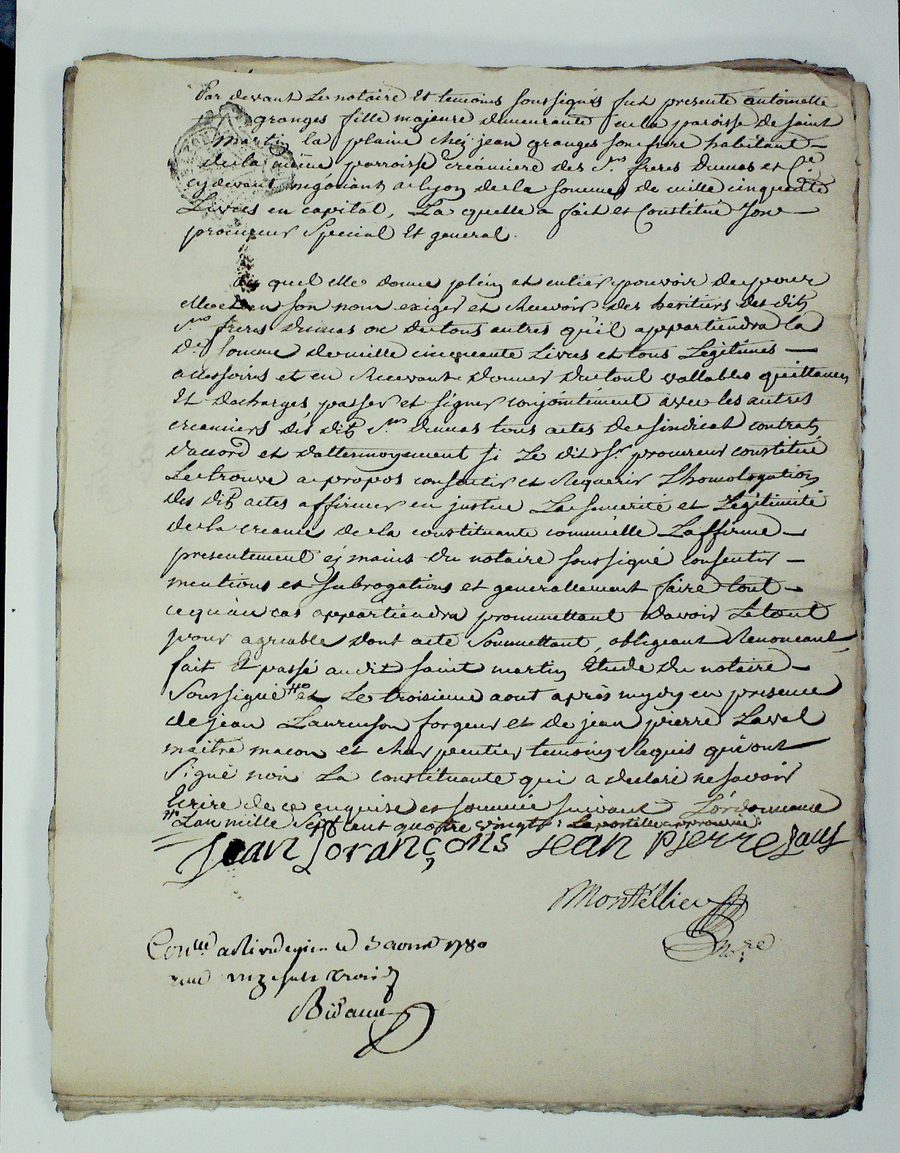 Par devant Le notaire Et temoins soussignés fut presente antoinette
granges fille majeure demeurante en la paroisse de saint
martin la plaine chéz jean granges son frere habitant
de la même parroisse créanciere des Srs freres dumas et Cie
cy devant négotians a lyon de la somme de mille cinquante
Livres en capital, La quelle a fait et Constitué son
procureur Special Et general.
au quel elle donne plein et entier pouvoir de pour
elle et en son nom exiger et Recevoir des heritiers des dits
Srs freres dumas ou de tous autres qu'il appartiendra la
de somme de mille cinquante Livres et tous Legitimes
accessoires et en Recevant donner du tout vallables quittances
Et decharges passer et signer conjointement avec les autres
creanciers des dits Srs dumas tous actes de sindicat contrats
d'accord et d'attermoyement si Le dit Sr procureur constitué
Le trouve apropos consentir et Requerir L'homologation
des dits actes affirmer en justice La sincerité et Légitimité
de la creance de la constituante comm'elle L'affirme
presentement ez mains du notaire soussigné consentir
mentions et subrogations et generallement faire tout
ce qu'au cas appartiendra promettant d'avoir Le tout
pour agreable dont acte Soummettant, obligeant Renonceant,
fait Et passé au dit saint martin Etude du notaire
Soussigné Le troisieme aout après mydy en presence
de jean Laurenson forgeur et de jean pierre Laval
maitre macon et charpentier temoins Requis qui ont
signé non La constituante qui a declaré ne savoir
Ecrire de ce enquise et sommée suivant L'ordonnance
L'an mille Sept cent quatre vingt: Le postille approuvé
Jean Lorançons Jean Pierre Laus
Montellier
nore
Conllé a Rivedegier le 3 aoust 1780
Bidaux